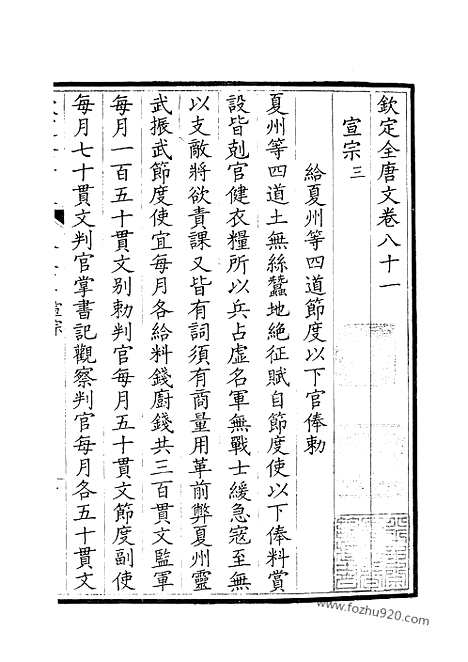 欽定全唐文卷八十一
宣宗三
給夏州等四道節度以下官俸勅
夏州等四道土無絲蠶地絶征賦自節度使以下俸料賞
設皆剋官健衣糧所以兵占虛名軍無戰士緩急寇至無
以支敵將欲責課又皆有詞須有商量用革前弊夏州靈
武振武節度使宜每月各給料錢廚錢共三百貫文監軍
每月一百五十貫文别勅判官每月五十貫文節度副使
每月七十貫文判官掌書記觀察判官每月各五十貫文
www.fozhu920.com